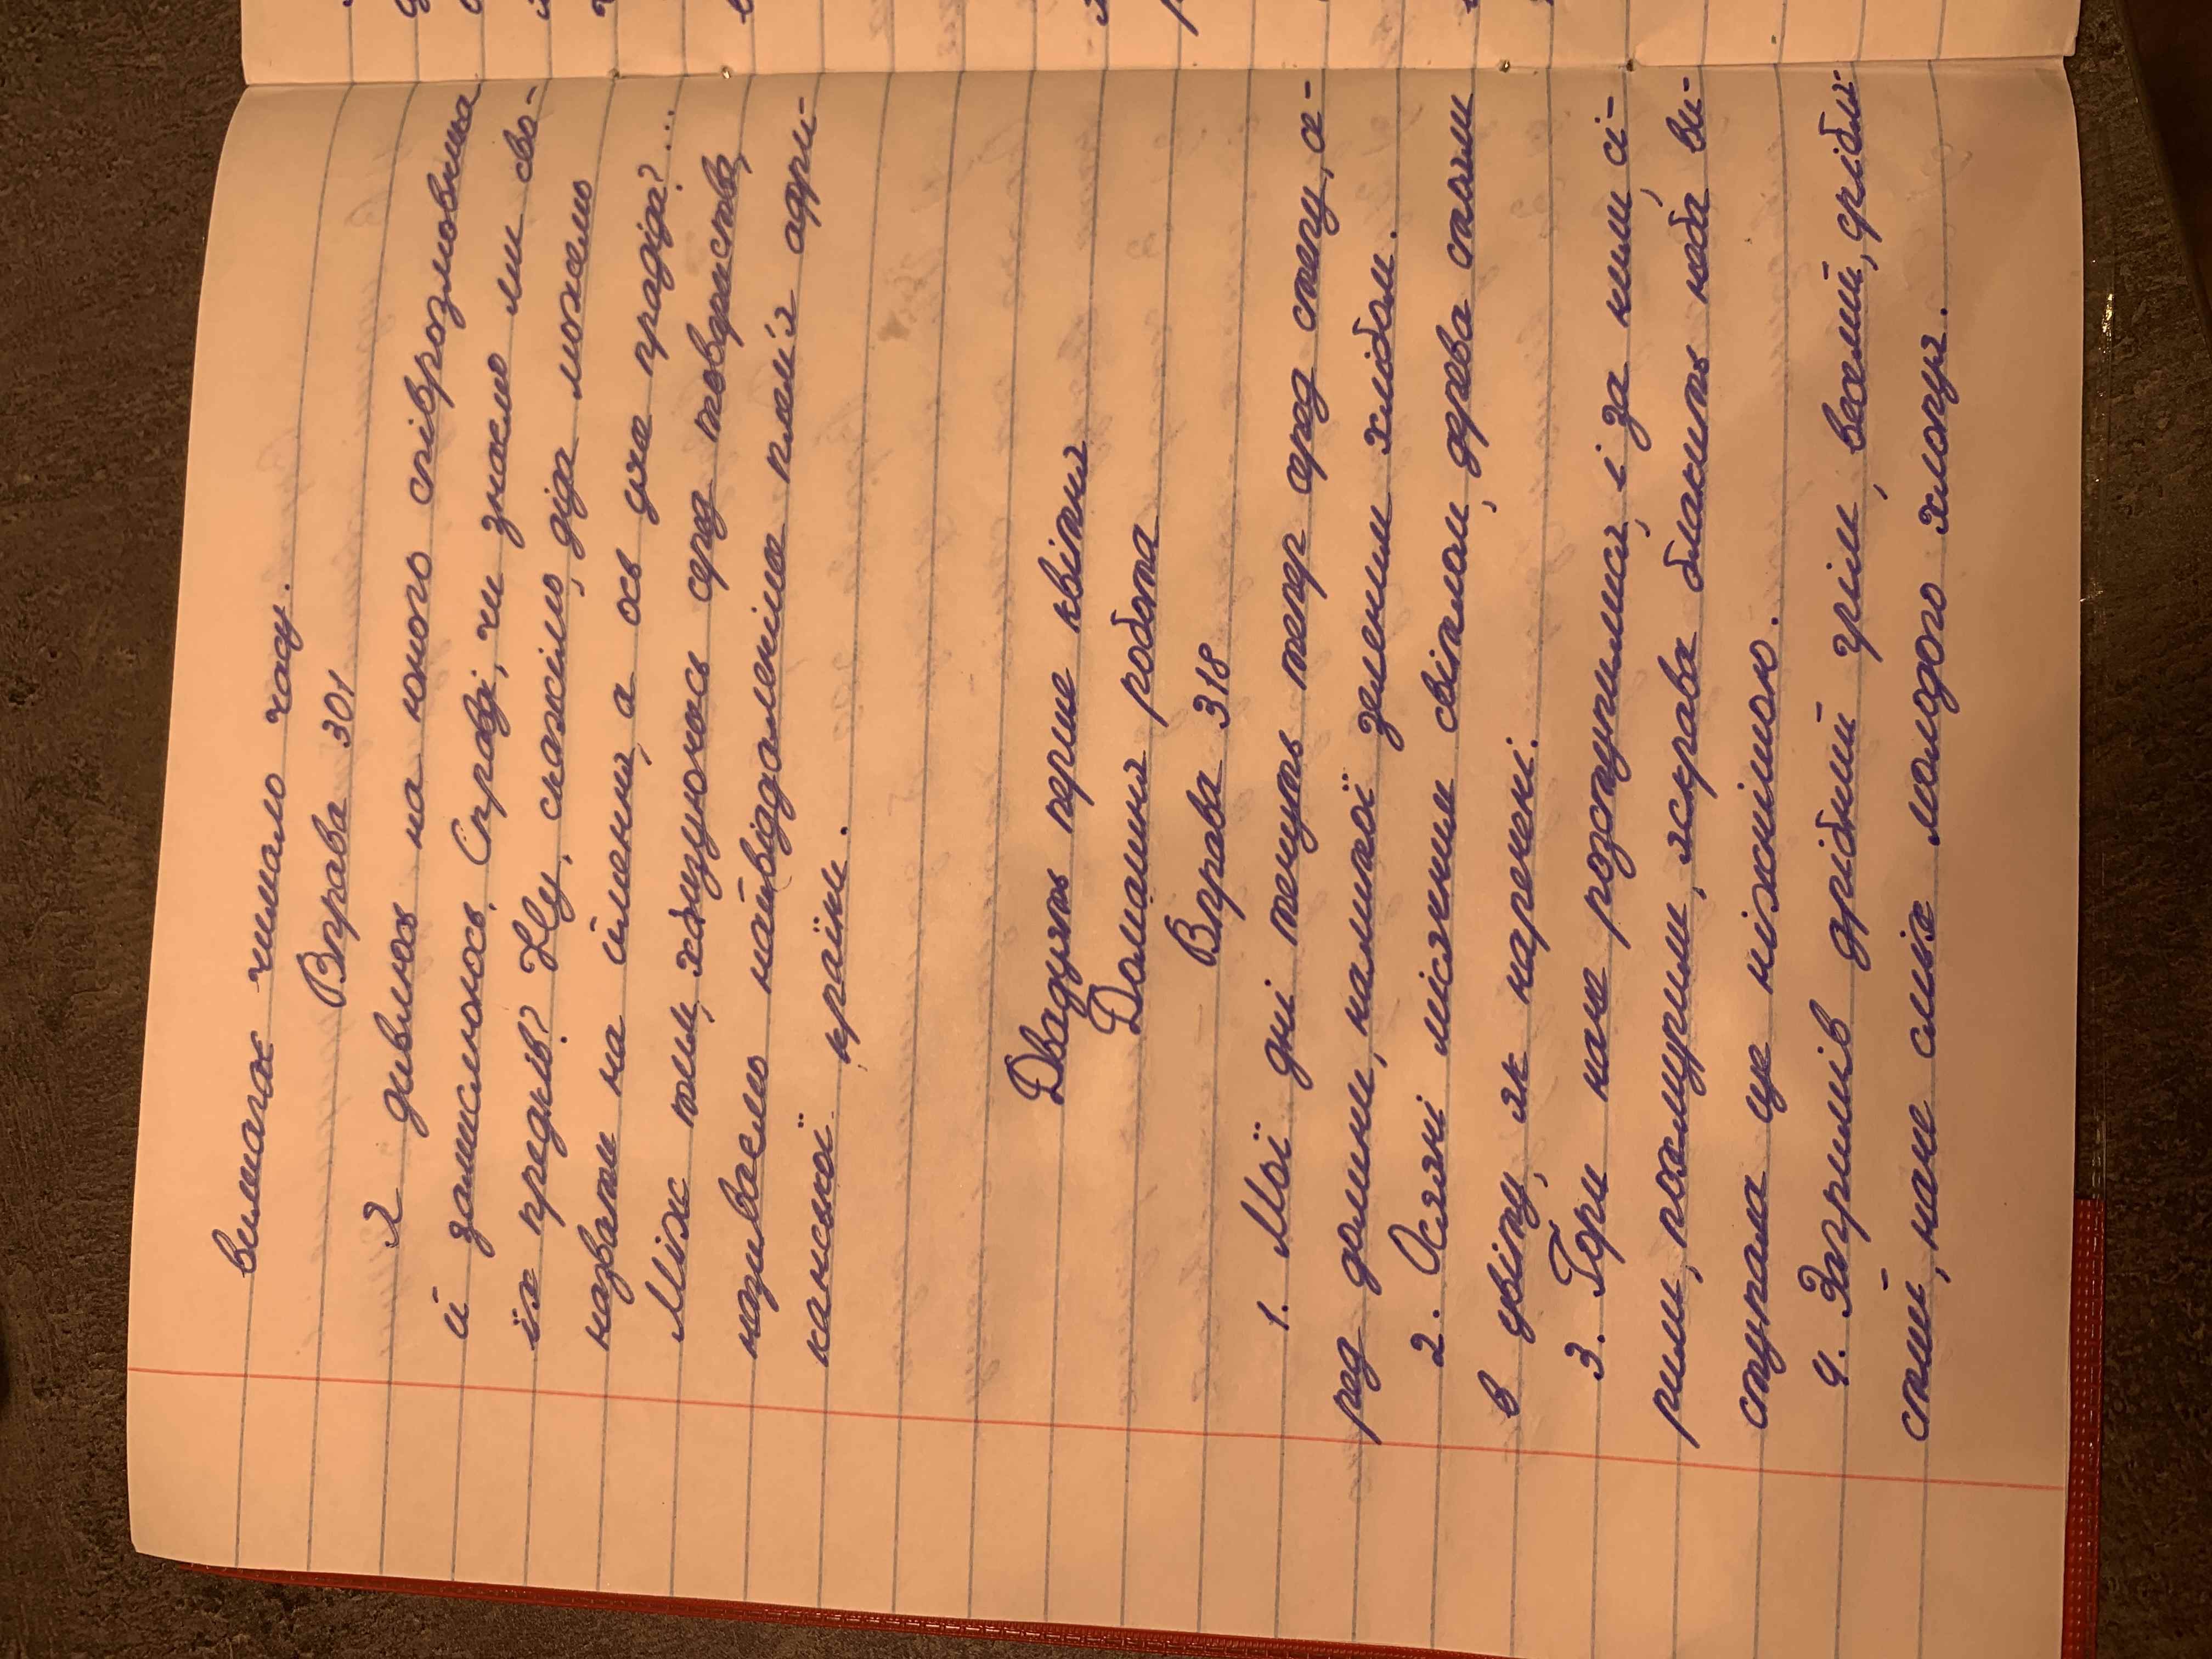 вимагає чимало часу.
Вправа 301
Я дивлюсь на юного співрозмовника
й замислююсь. Справді, чи знаємо ми сво-
їх предків? Ну, скажімо, діда можемо
назвати на ймення, а ось уже прадіда?...
Між тим, хизуючись серед товариства,
називаємо найвідаленіше плем'я афри-
канської країни.
Двадцять перше квітня
Домашня робота
Вправа 318
1. Мої дні течуть тепер серед степу, се-
ред долини, налитої зеленим хлібом.
2. Осяяні місячним світлом, дерева стояли
в цвіту, як наречені.
3. Гори наче розступились, і за ними, сі-
рими, похмурими, яскрава блакить неба ви-
ступала ще ніжнішою.
4. Загримів дрібний грім, веселий, срібли-
стий, наче сміх молодого хлопця.